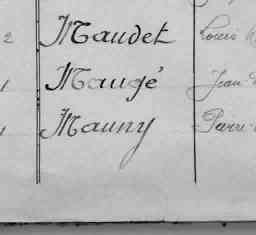 2 Maudet Louis
1 Maugé Jean
1 Mauny Pierre